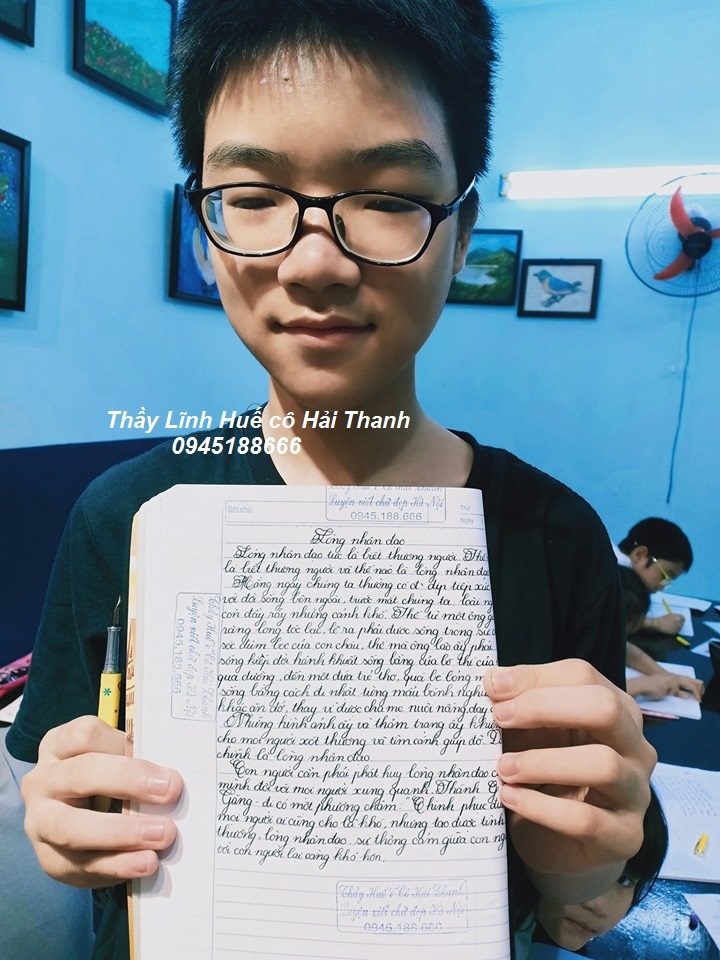 Thầy Lĩnh Huế cô Hải Thanh
0945188666
Luyện viết chữ đẹp Hà Nội
0945.188.666
Ghi chú:
Thứ
Ngày
Lòng nhân đạo
Lòng nhân đạo tức là biết thương người. Thế
là biết thương người và thế nào là lòng nhân đạ
Hàng ngày chúng ta thường có dịp tiếp xúc
với đời sống bên ngoài, trước mắt chúng ta loài ng
còn đầy rẫy những cảnh khổ. Thế từ một ông g
răng long tóc bạc, lẽ ra phải được sống trong sự
sóc đùm bọc của con cháu, thế mà ông lão ấy phải
sống kiếp đời hành khuất sống bằng của bố thí của
qua đường, đến một đứa trẻ thơ, quá bé bỏng m
sống bằng cách đi nhặt từng mẩu bánh
khác ăn dở, thay vì được cha mẹ nuôi nấng dạy
Những hình ảnh ấy và thảm trạng ấy khiế
cho mọi người xót thương và tìm cách giúp đỡ.
chính là lòng nhân đạo.
Con người cần phải phát huy lòng nhân đạo c
mình đối với mọi người xung quanh. Thánh G
Găng-đi có một phương châm: "Chinh phục
mọi người ai cũng cho là khó, nhưng tạo được tình
thương, lòng nhân đạo, sự thông cảm giữa con ng
với con người lại càng khó hơn.
Thầy Huế & Cô Hải Thanh
Luyện viết chữ đẹp Hà Nội
0945.188.666
Thầy Huế & Cô Hải Thanh
Luyện viết chữ đẹp Hà Nội
0945.188.666